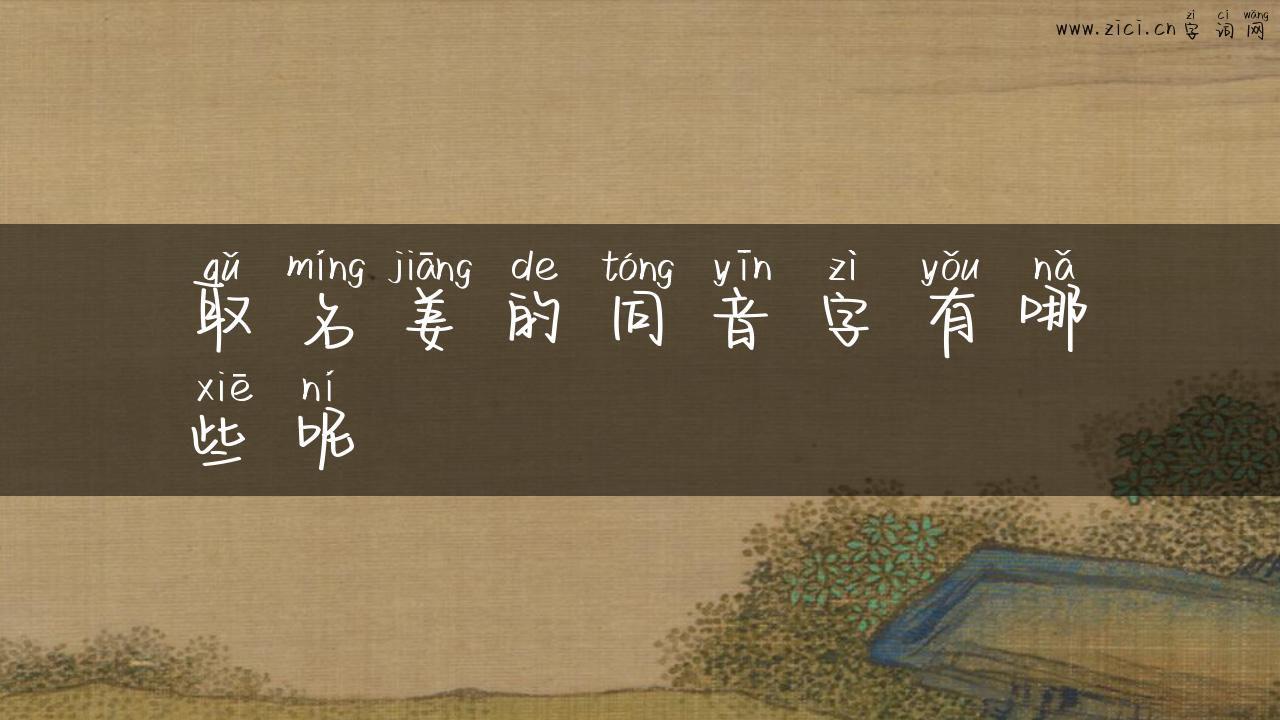 zì cí wǎng
www.zici.cn 字词网
qǔ míng jiāng de tóng yīn zì yǒu nǎ
取名姜的同音字有哪
xiē ní
些呢